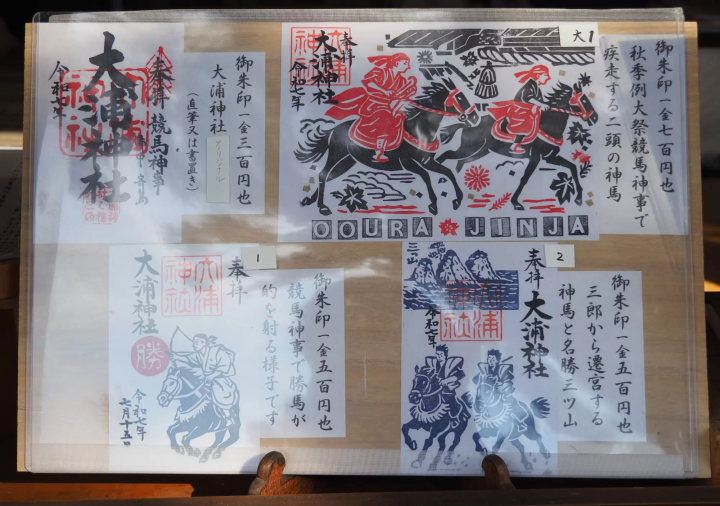 奉拝 競馬神事
大浦神社
令和七年
御朱印一金三百円也
大浦神社
オリジナル
(直筆又は書置き)
大1
奉拝
大浦神社
令和七年
OOURA JINJA
御朱印一金七百円也
秋季例大祭競馬神事で
疾走する二頭の神馬
1
奉拝
大浦神社
大浦神社
勝
令和七年
七月十五日
御朱印一金五百円也
競馬神事で勝馬が
的を射る様子です
2
三山
奉拝
大浦神社
大浦神社
令和七年
御朱印一金五百円也
三郎から遷宮する
神馬と名勝三ツ山